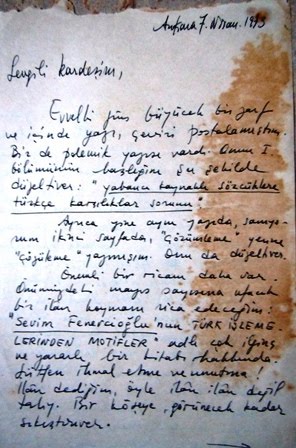 Ankara 7. Nisan. 1993
Sevgili kardeşim,
Evvelki gün büyücek bir zarf
ve içinde yazı, çeviri postalamıştım.
Bir de polemik yazısı vardı. Onun I.
bölümünün başlığını şu şekilde
düzeltiver: "yabancı kaynaklı sözcüklere
türkçe karşılıklar sorunu"
Ayrıca yine aynı yazıda, sanıyo-
rum ikinci sayfada, "çözümleme" yerine
"çözükme" yazmışım. Onu da düzeltiver.
Önemli bir ricam daha var.
Önümüzdeki mayıs sayısına ufacık
bir ilan koymanı rica edeceğim:
"Sevim Fenercioğlu'nun TÜRK İŞLEME-
LERİNDEN MOTİFLER" adlı çok ilginç
ve yararlı bir kitabı hakkında.
Lütfen ihmal etme ve unutma!
İlan dediğim, öyle ilan ilan değil
tabiy. Bir köşeye, görünecek kadar
sıkıştırıver.